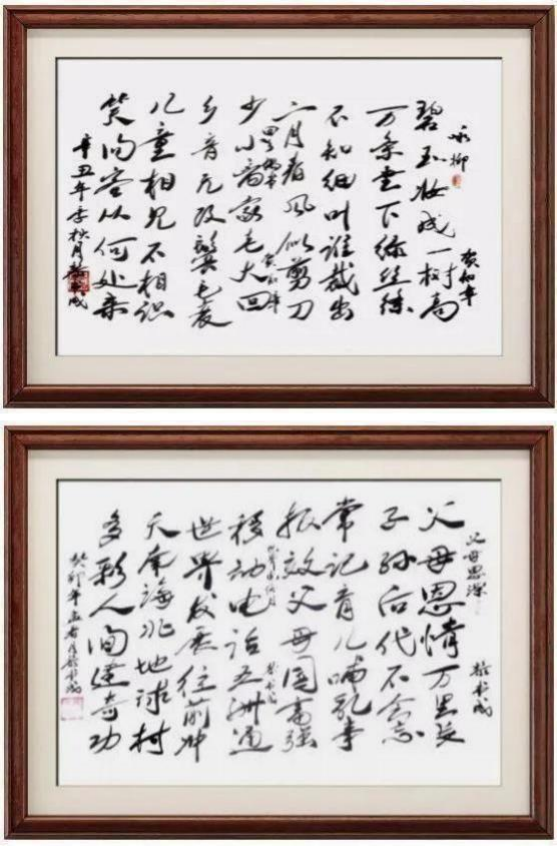 咏柳
贺知章
碧玉妆成一树高
万条垂下绿丝绦
不知细叶谁裁出
二月春风似剪刀
回乡偶书
贺知章
少小离家老大回
乡音无改鬓毛衰
儿童相见不相识
笑问客从何处来
辛丑年季秋月
父母恩深
父母恩情万里延
子孙后代不会忘
常记育儿哺乳事
报效父母国富强
移动电话五洲通
世界发展往前冲
天南海北地球村
多彩人间建奇功
癸卯年孟春月